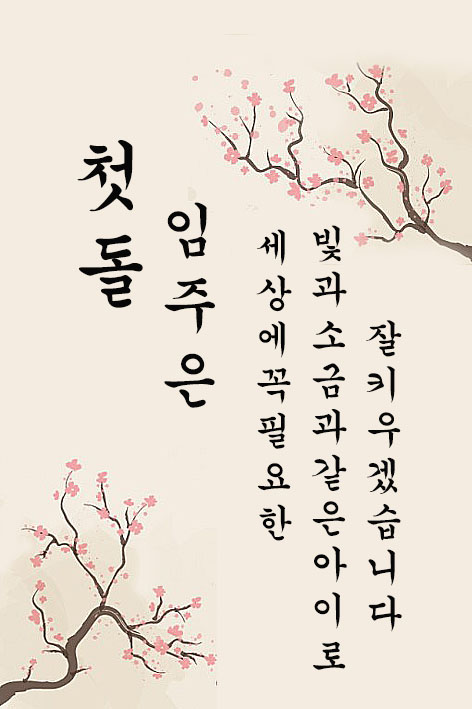 첫돌
임주은
세상에꼭필요한
빛과소금과같은아이로
잘키우겠습니다